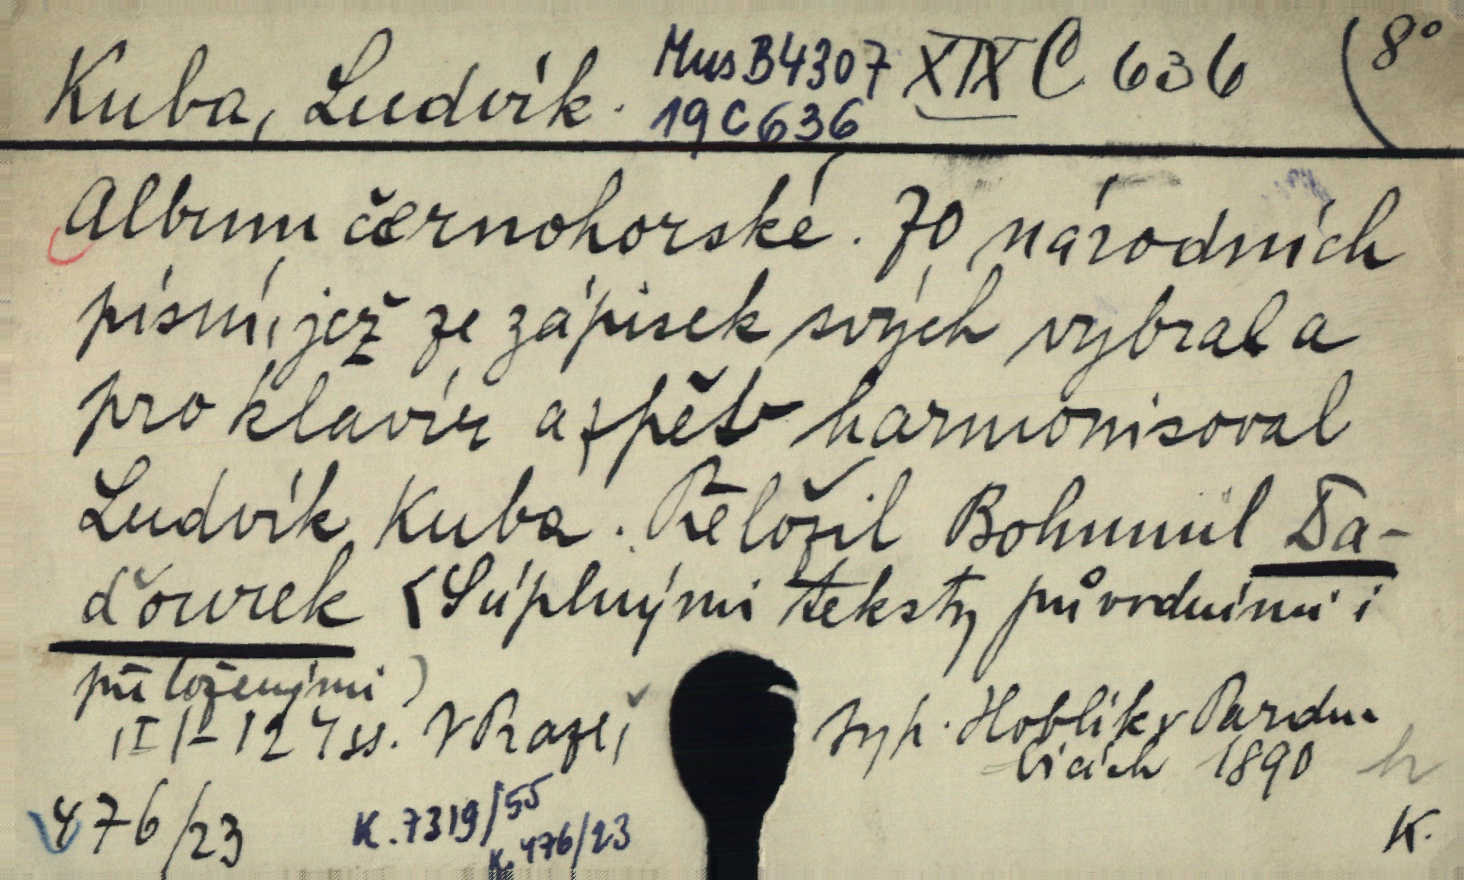 Kuba, Ludvík. MusB4307 XIX C 636 (8°
19C636
Album černohorské. 70 národních
písní, jež ze zápisek svých vybral a
pro klavír a zpěv harmonisoval
Ludvík Kuba. Přeložil Bohumil Da-
ďourek (S úplnými teksty původními i
přeloženými)
II | - 127 ss. V Praze, typ. Hoblík v Pardu-
bicích 1890
476/23 K.7319/55 K.
K.476/23